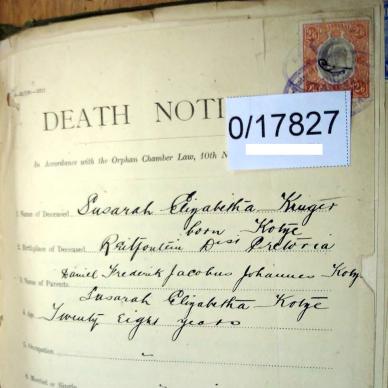 DEATH NOTI
0/17827
In Accordance with the Orphan Chamber Law, 10th N
1. Name of Deceased Susarah Elizabetha Kruger
born Kotze
2. Birthplace of Deceased Rietfontein Dist Pretoria
Daniel Frederik Jacobus Johannes Kotze
3. Name of Parents
Susarah Elizabetha Kotze
4. Age Twenty Eight years
5. Occupation
6. Married or Single